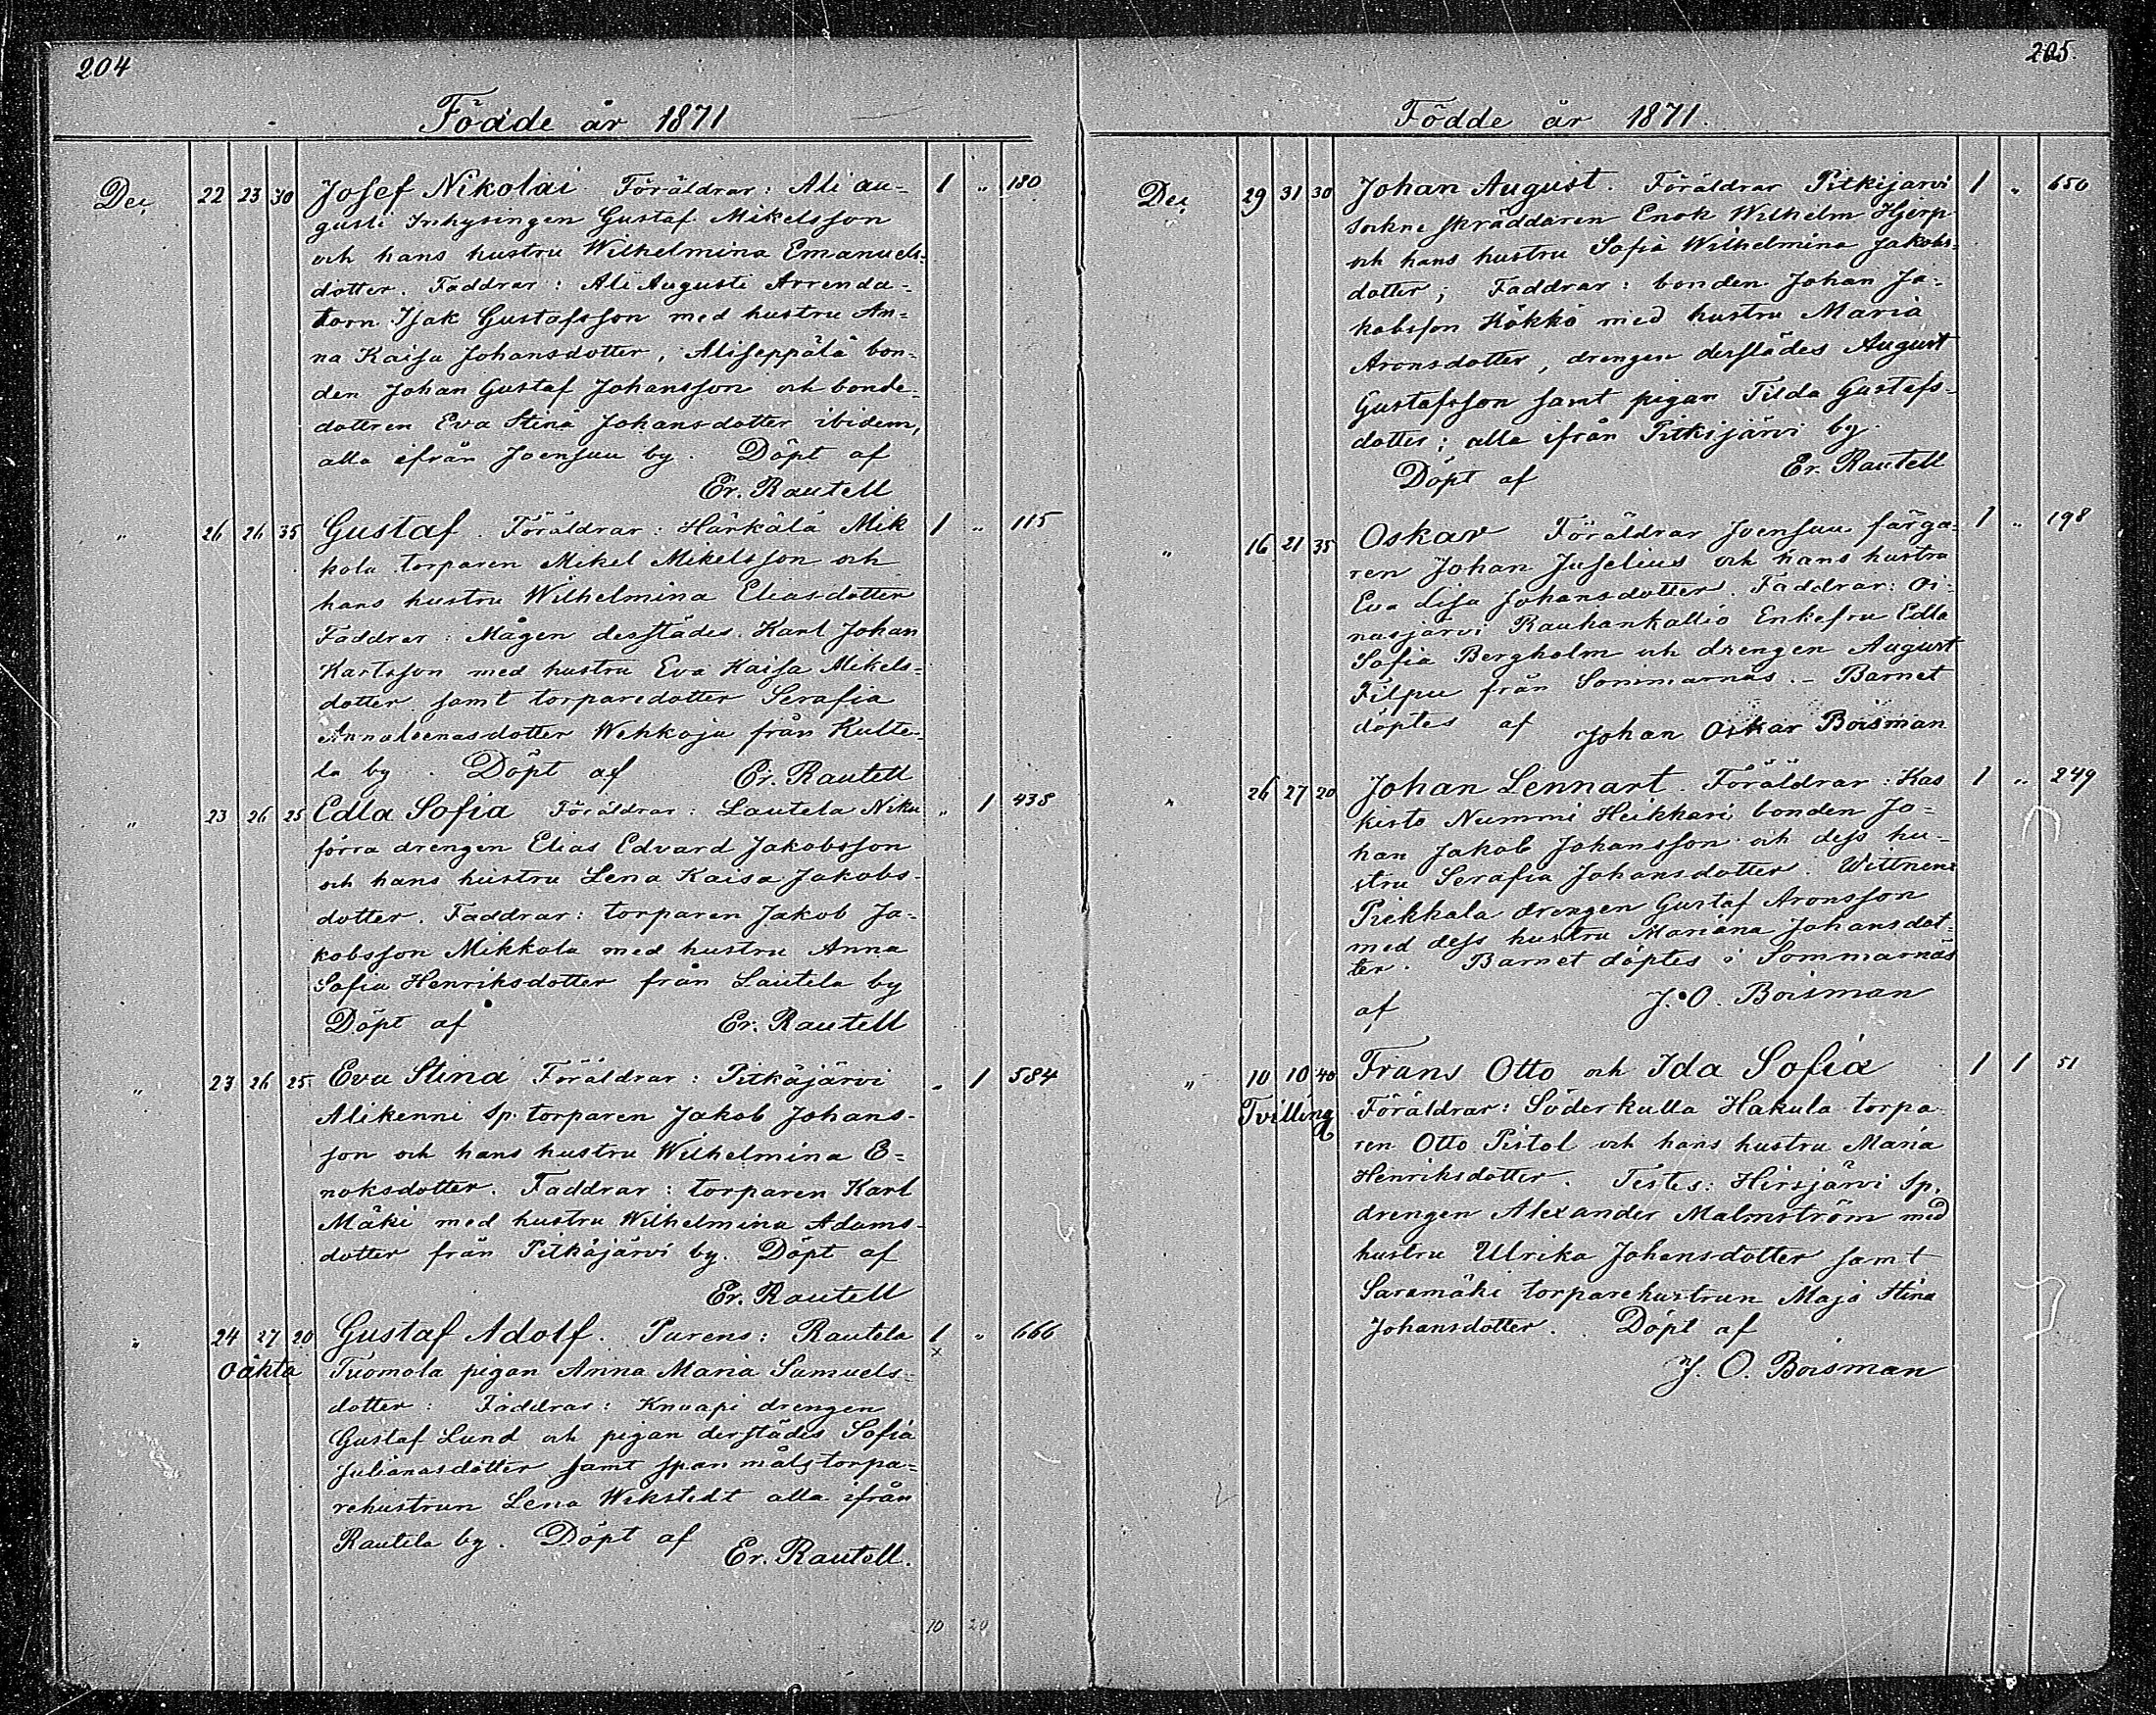 204
Födde år 1871
Dec 22 23 30 Josef Nikolai. Föräldrar: Ali au- 1 " 180
gusti Inhysingen Gustaf Mikelsson
och hans hustru Wilhelmina Emanuels-
dotter. Faddrar: Ali Augusti Arrenda-
torn Isak Gustafsson med hustru An-
na Kaisa Johansdotter, Aliseppälä bon-
den Johan Gustaf Johansson och bonde-
dottren Eva Stina Johansdotter ibidem,
alla ifrån Joensuu by. Döpt af
Er. Rautell
" 26 26 35 Gustaf. Föräldrar: Härkälä Mik 1 " 115
kola torparen Mikel Mikelsson och
hans hustru Wilhelmina Eliasdotter
Faddrar: Mågen derstädes Karl Johan
Karlsson med hustru Eva Kaisa Mikels-
dotter samt torparedotter Serafia
Annaleenasdotter Wehkoja från Kulte-
la by. Döpt af Er. Rautell
" 23 26 25 Edla Sofia Föräldrar: Lautela Niku " 1 438
förra drengen Elias Edvard Jakobsson
och hans hustru Lena Kaisa Jakobs-
dotter. Faddrar: torparen Jakob Ja-
kobsson Mikkola med hustru Anna
Sofia Henriksdotter från Lautela by
Döpt af Er. Rautell
" 23 26 25 Eva Stina Föräldrar: Pitkäjärvi " 1 584
Alikenni Sp. torparen Jakob Johans-
son och hans hustru Wilhelmina E-
noksdotter. Faddrar: torparen Karl
Mäki med hustru Wilhelmina Adams-
dotter från Pitkäjärvi by. Döpt af
Er. Rautell
" 24 27 20 Gustaf Adolf. Parens: Rautela 1 " 666
Oäkta Tuomola pigan Anna Maria Samuels- x
dotter: Faddrar: Knaapi drengen
Gustaf Lund och pigan derstädes Sofia
Julianasdotter samt spanmålstorpa-
rehustrun Lena Wikstedt alla ifrån
Rautela by. Döpt af Er. Rautell.
10 20
205.
Födde år 1871.
Dec 29 31 30 Johan August. Föräldrar Pitkijarvi 1 " 650
sockne skräddaren Enok Wilhelm Hjerp
och hans hustru Sofia Wilhelmina Jakobs-
dotter; Faddrar: bonden Johan Ja-
kobsson Kökkö med hustru Maria
Aronsdotter, drengen derstädes August
Gustafsson samt pigan Tilda Gustafs-
dotter; alla ifrån Pitkijärvi by.
Döpt af Er. Rautell
" 16 21 35 Oskar Föräldrar Joensuu färga- 1 " 198
ren Johan Juselius och hans hustru
Eva Lisa Johansdotter. Faddrar: Oi-
nasjärvi Rauhankallio Enkefru Edla
Sofia Bergholm och drengen August
Filpu från Sommarnäs. - Barnet
döptes af Johan Oskar Boisman
" 26 27 20 Johan Lennart. Föräldrar: Kas 1 " 249
kisto Nummi Heikkari bonden Jo-
han Jakob Johansson och dess hu-
stru Serafia Johansdotter. Wittnen:
Piekkala drengen Gustaf Aronsson
med dess hustru Mariana Johansdot-
ter. Barnet döptes i Sommarnäs
af J. O. Boisman
" 10 10 40 Frans Otto och Ida Sofia 1 1 51
Tvilling Föräldrar: Söderkulla Hakula torpa-
ren Otto Pistol och hans hustru Maria
Henriksdotter. Testes: Hirsjärvi Sp.
drengen Alexander Malmström med
hustru Ulrika Johansdotter samt
Saramäki torparehustrun Maja Stina
Johansdotter. Döpt af
J. O. Boisman